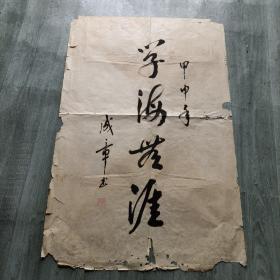 甲申年
学海无涯
成章书